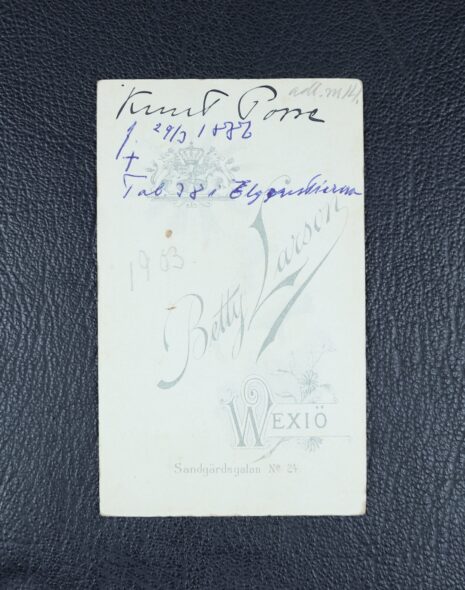 Knut Posse
adl. nr 14
f. 29/3 1886
+
Tab. 28 i Elgenstierna
1903
Betty Larson
WEXIÖ
Sandgärdsgatan No 24.